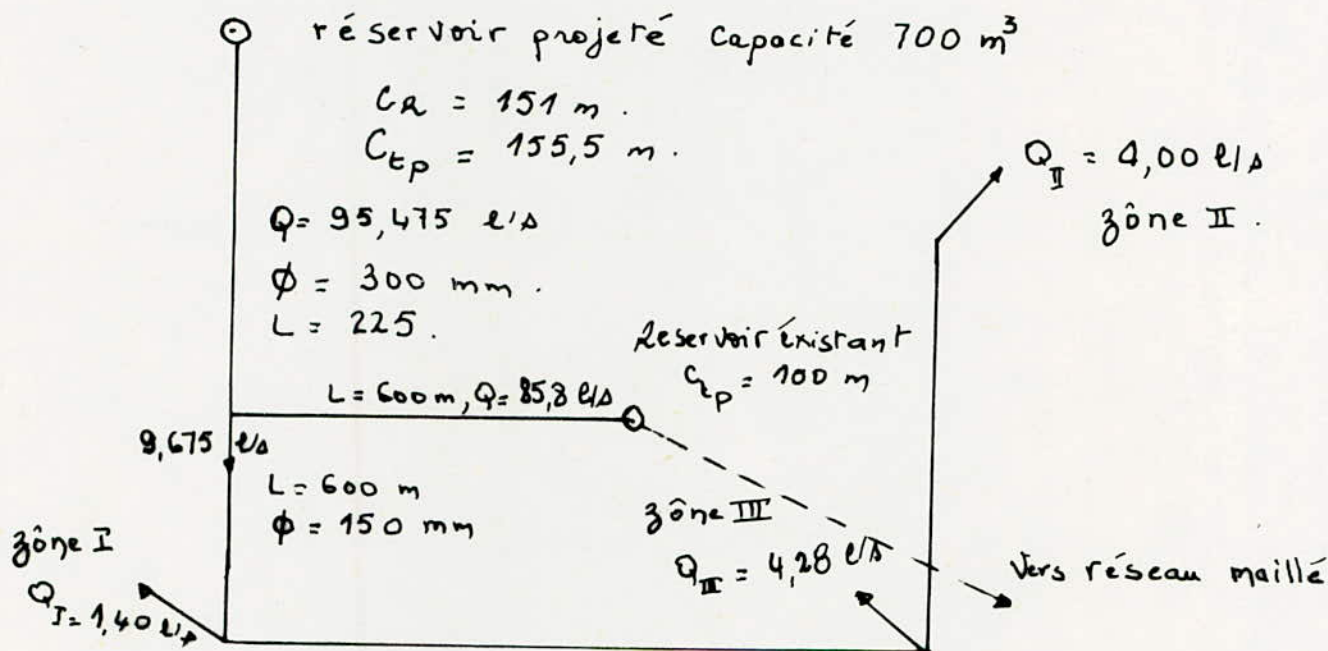 réservoir projeté capacité 700 m³
CR = 151 m.
Ctp = 155,5 m.
Q = 95,475 l/s
ϕ = 300 mm.
L = 225.
QII = 4,00 l/s
zône II.
Reservoir éxistant
Ctp = 100 m
L = 600 m, Q = 85,8 l/s
9,675 l/s
L = 600 m
ϕ = 150 mm
zône III
QIII = 4,28 l/s
zône I
QI = 1,40 l/s
Vers réseau maillé